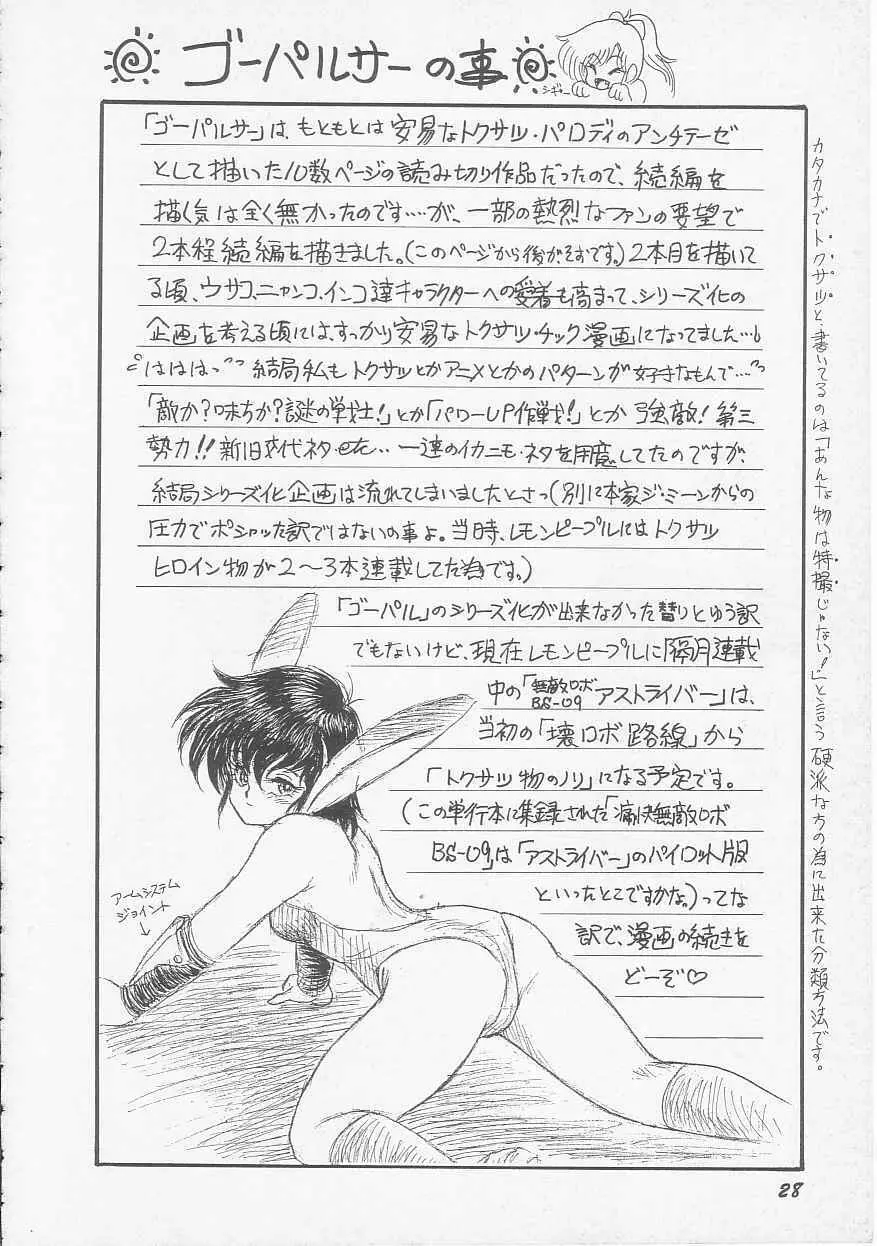 ゴーパルサーの事
ジギャー
「ゴーパルサー」は、もともとは安易なトクサツ・パロディのアンチテーゼ
として描いた10数ページの読み切り作品だったので、続編を
描く気は全く無かったのです……が、一部の熱烈なファンの要望で
2本程続編を描きました。(このページから後がそおです。)2本目を描いて
る頃、ウサコ、ニャンコ、インコ達キャラクターへの愛着も高まって、シリーズ化の
企画を考える頃には、すっかり安易なトクサツ・チック漫画になってました…
はははっ 結局私もトクサツとかアニメとかのパターンが好きなもんで…
「敵か?味方か?謎の戦士!」とか「パワーUP作戦!」とか 強敵!第三
勢力!!新旧交代ネタ・etc… 一連のイカニモ・ネタを用意してたのですが、
結局シリーズ化企画は流れてしまいましたとさっ(別に本家ジ・ミーンからの
圧力でポシャッた訳ではないの事よ。当時、レモンピープルにはトクサツ
ヒロイン物が2〜3本連載してた為です。)
「ゴーパル」のシリーズ化が出来なかった替りとゆう訳
でもないけど、現在レモンピープルに隔月連載
中の「無敵ロボBS-09アストライバー」は、
当初の「壊ロボ路線」から
「トクサツ物のノリ」になる予定です。
(この単行本に集録された「痛快無敵ロボ
BS-09」は「アストライバー」のパイロット版
といったとこですかな。)ってな
訳で、漫画の続きを
どーぞ♡
アームシステム
ジョイント
↓
カタカナでトクサツと書いてるのは「あんな物は特撮じゃない!」と言う硬派な方の為に出来た分類方法です。
28